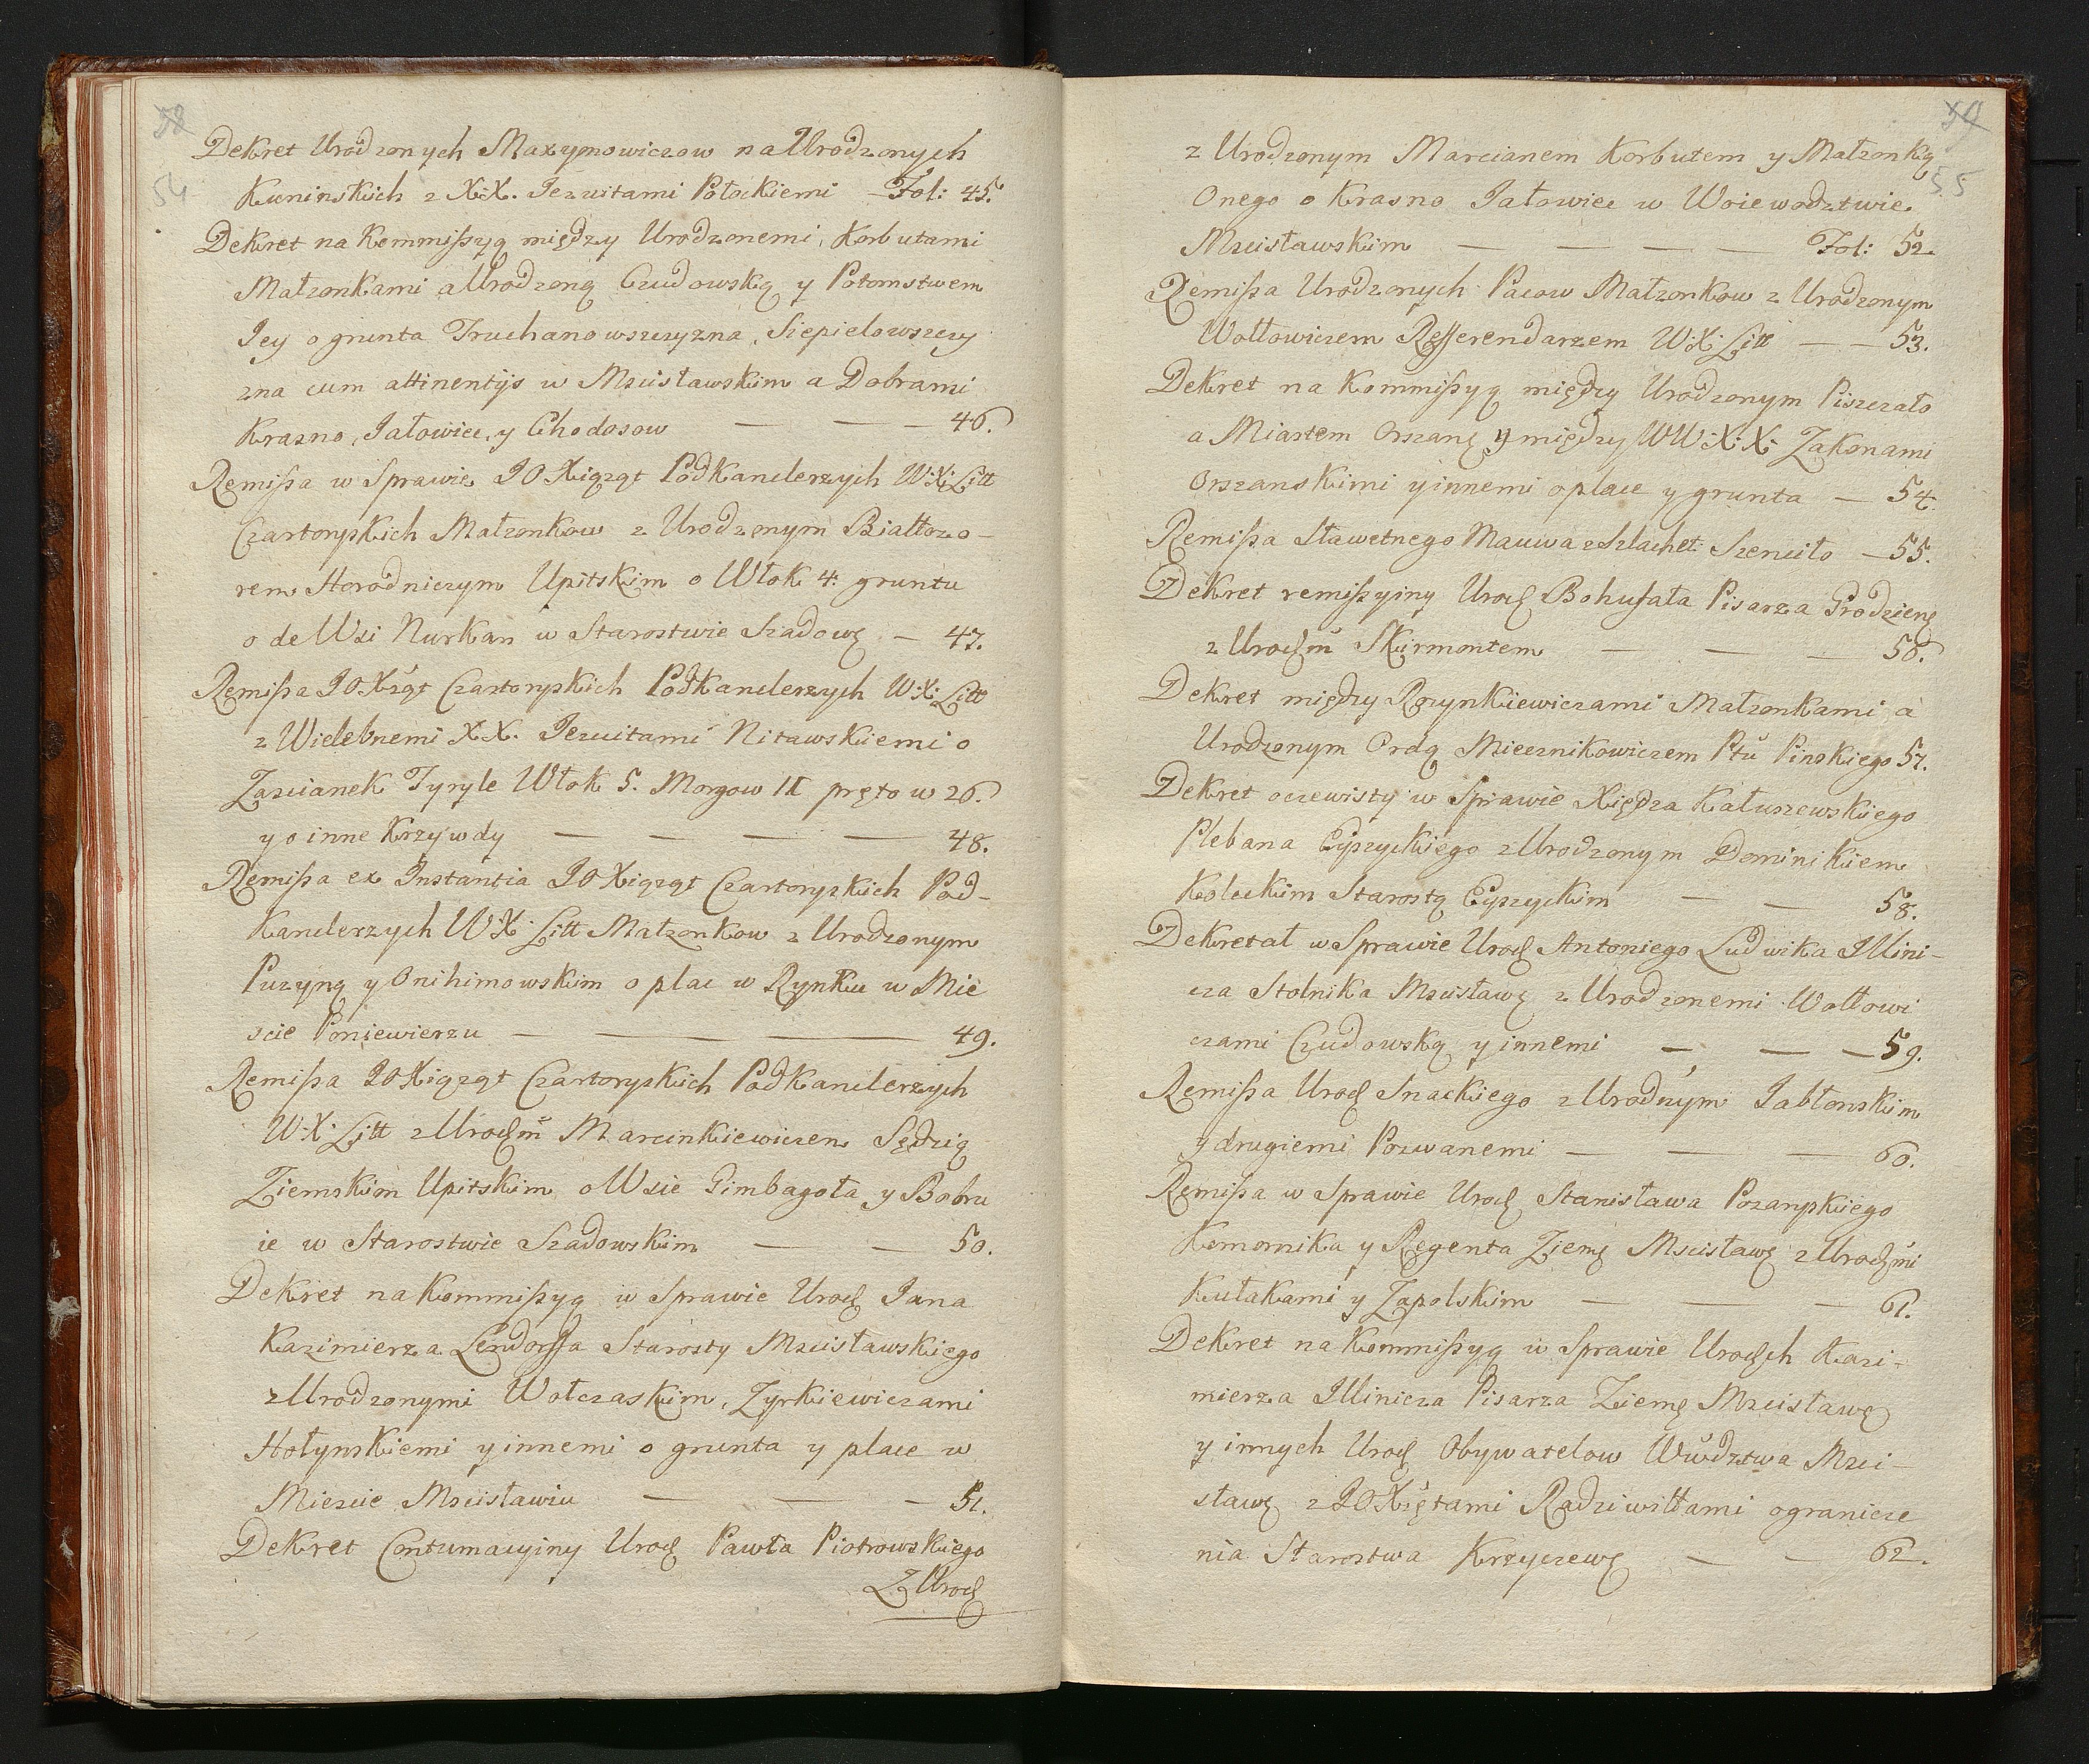 58
54
Dekret Urodzonych Maxymowiczow na Urodzonych
Kuninskich z X.X. Jezuitami Połockiemi — Fol: 45.
Dekret na Kommissyą między Urodzonemi, Korbutami
Małzonkami a Urodzoną Czudowską y Potomstwem
Jey o grunta Truchanowszczyzna, Siepielowszczy
zna cum attinentÿs w Mscisławskim a Dobrami
Krasno, Jałowiec, y Chodosow — — — 46.
Remissa w Sprawie JO Xiążąt Podkanclerzych W:X:Litt
Czartoryskich Małzonkow z Urodzonym Białłozo-
rem Horodniczym Upitskim o Włok 4: gruntu
o de Wsi Nurkan w Starostwie Szadowę — 47.
Remissa JO Xżąt Czartoryskich Podkanclerzych W:X:Litt
z Wielebnemi X.X. Jezuitami Nitawskiemi o
Zascianek Tyryle Włok 5. Morgow 11 pręto w 26.
y o inne Krzywdy — — — — 48.
Remissa ex Instantia JO Xiążąt Czartoryskich Pod-
kanclerzych W:X: Litt Małzonkow z Urodzonym
Puzyną y Onihimowskim o plac w Rynku w Mie
scie Poniewierzu — — — 49.
Remissa JO Xiążąt Czartoryskich Podkanclerzych
W:X: Litt z Urodzm Marcinkiewiczem Sędzią
Ziemskim Upitskim o Wsie Gimbagoła y Bobru
ie w Starostwie Szadowskim — — 50.
Dekret na Kommissyą w Sprawie Urodz Jana
Kazimierza Lendorffa Starosty Mscisławskiego
z Urodzonymi Wołczaskim, Zyrkiewiczami
Hołynskiemi y innemi o grunta y place w
Miescie Mscisławiu — — — 51.
Dekret Contumacyiny Urodz Pawła Piotrowskiego
Z Urodz
59
55
z Urodzonym Marcianem Korbutem y Małzonką
Onego o Krasno Jałowiec w Woiewodztwie
Mscisławskim — — — — Fol: 52.
Remissa Urodzonych Pacow Małzonkow z Urodzonym
Wołłowiczem Refferendarzem W:X:Litt — — 53.
Dekret na Kommissyą między Urodzonym Piszczało
a Miastem Orszanę y między WW:X:X: Zakonami
Orszanskimi y innemi o place y grunta — 54.
Remissa Sławetnego Mauwa z Szlachet: Szenciło — 55.
Dekret remissyiny Urodz Bohufała Pisarza Grodzienę
z Urodzm Skirmontem — — — 56.
Dekret między Rozynkiewiczami Małzonkami a
Urodzonym Ordą Miecznikowiczem Ptu Pinskiego 57.
Dekret oczewisty w Sprawie Xiędza Kałuszewskiego
Plebana Eyszyckiego z Urodzonym Dominikiem
Koleckim Starostą Eyszyckim — — 58.
Dekretał w Sprawie Urodz Antoniego Ludwika Illini-
cza Stolnika Mscisławę z Urodzonemi Wołłowi
czami Czudowską y innemi — — — 59.
Remissa Urodz Snackiego z Urodnym Jabłonskim
y drugiemi Pozwanemi — — — 60.
Remissa w Sprawie Urodz Stanisława Pozaryskiego
Komornika y Regenta Ziemę Mscisławę z Urodzmi
Kułakami y Zapolskim — — — 61.
Dekret na Kommissyą w Sprawie Urodzch Kazi-
mierza Illinicza Pisarza Ziemę Mscisławę
y innych Urodz Obywatelow Wwdztwa Msci-
sławę z JO Xiętami Radziwiłłami ogranicze
nia Starostwa Krzyczewę — — 62.